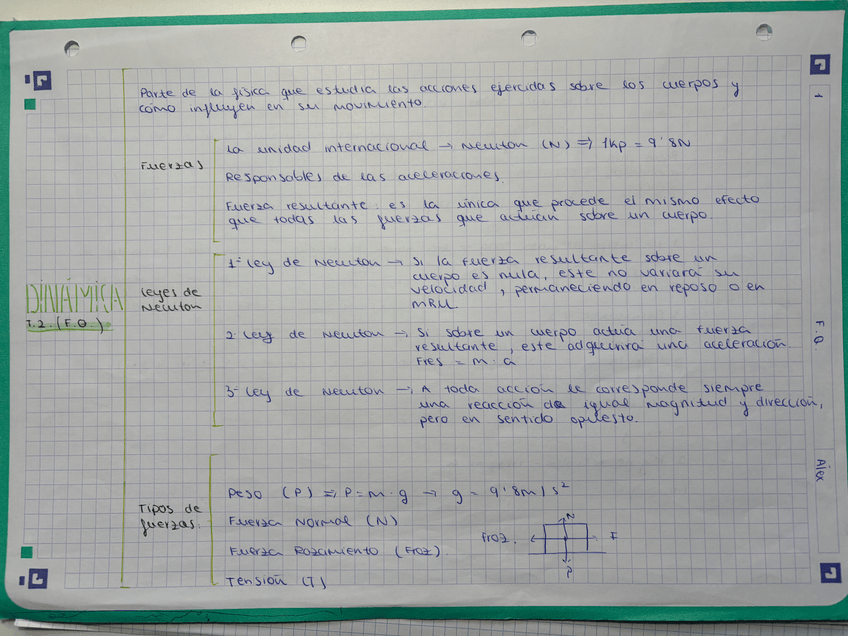 Parte de la física que estudia las acciones ejercidas sobre los cuerpos y
cómo influyen en su movimiento.
Fuerzas
La unidad internacional → Newton (N) ⇒ 1kp = 9'8N
Responsables de las aceleraciones.
Fuerza resultante: es la única que procede el mismo efecto
que todas las fuerzas que actúan sobre un cuerpo.
DINÁMICA
T.2. (F.Q.)
Leyes de
Newton
1- Ley de Newton → Si la fuerza resultante sobre un
cuerpo es nula, este no variará su
velocidad, permaneciendo en reposo o en
MRU.
2- Ley de Newton → Si sobre un cuerpo actúa una fuerza
resultante, este adquirirá una aceleración
Fres = m · a
3- Ley de Newton → A toda acción le corresponde siempre
una reacción de igual magnitud y dirección,
pero en sentido opuesto.
Tipos de
fuerzas.
Peso (P) ⇒ P = m · g → g = 9'8m/s²
Fuerza Normal (N)
Fuerza Rozamiento (Froz)
Tensión (T)
N
Froz.
F
P
1
F.Q.
Alex